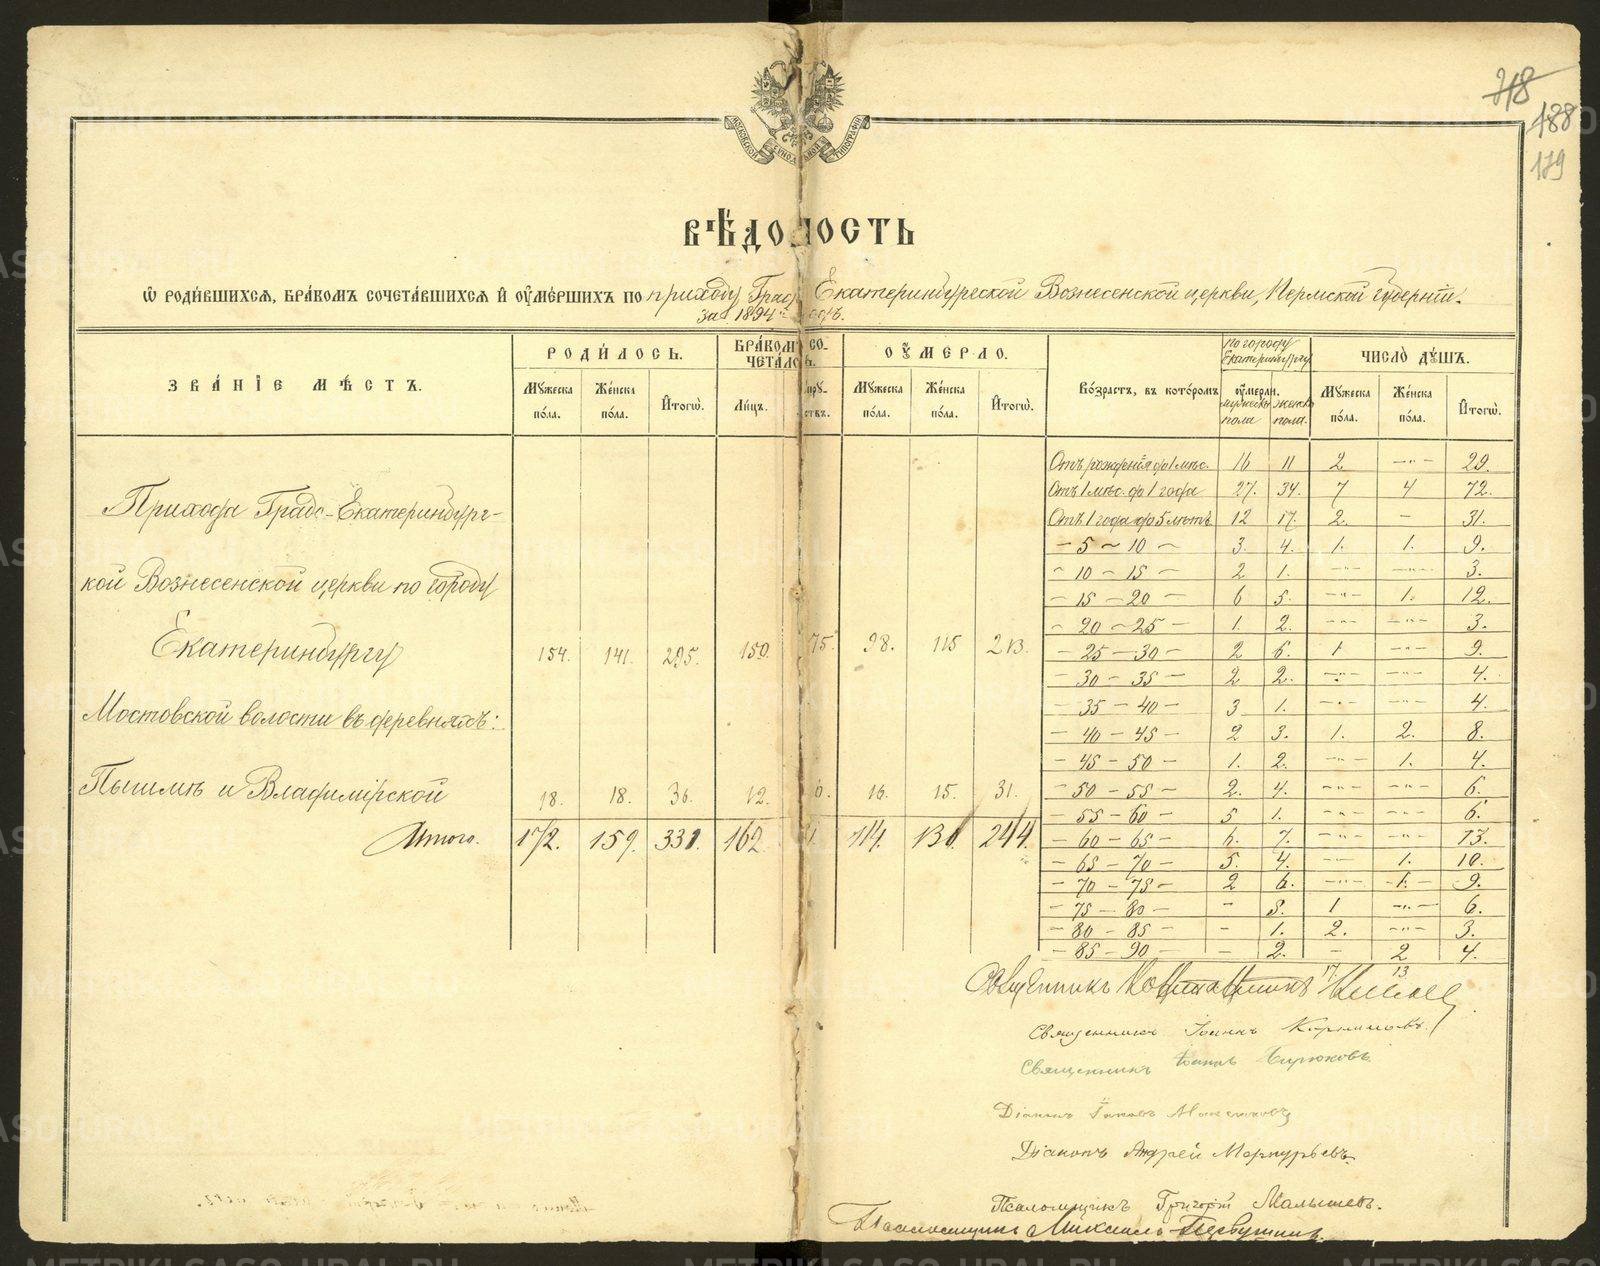 718
188
179
МОСКОВСКОЙ СУНОД. ТИПОГРАФІИ
ВѢДОМОСТЬ
Ѡ РОДИВШИХСЯ, БРАКОМЪ СОЧЕТАВШИХСЯ И ОУМЕРШИХЪ ПО приходу Градо Екатеринбургской Вознесенской церкви, Пермской губерніи.
за 1894 й годъ.
ЗВАНІЕ МѢСТЪ.
РОДИЛОСЬ.
БРАКОМЪ СОЧЕТАЛОСЬ.
ОУМЕРЛО.
Возрастъ, въ которомъ оумерли.
По городу Екатеринбургу
ЧИСЛО ДУШЪ.
Мужеска пола. Женска пола. Итогѡ. Лицъ. Мужеска пола. Женска пола. Итогѡ. мужеска пола женска пола. Мужеска пола. Женска пола. Итогѡ.
Прихода Градо-Екатеринбург-
кой Вознесенской церкви по городу
Екатеринбургу 154. 141. 295. 150. 75. 98. 115 213.
Мостовской волости въ деревняхъ:
Пышмѣ и Владимірской 18. 18. 36. 12. 6. 16. 15. 31.
Итого. 172. 159. 331. 162. 114. 130. 244.
Отъ рожденія до 1 мѣс. 16 11 2 —"— 29.
Отъ 1 мѣс. до 1 года 27. 34. 7 4 72.
Отъ 1 года до 5 лѣтъ 12 17. 2. — 31.
— 5 — 10 — 3. 4. 1. 1. 9.
— 10 — 15 — 2 1. —"— —"— 3.
— 15 — 20 — 6 5. —"— 1. 12.
— 20 — 25 — 1. 2. —"— —"— 3.
— 25 — 30 — 2 6. 1 —"— 9.
— 30 — 35 — 2 2. —"— —"— 4.
— 35 — 40 — 3 1. —"— —"— 4.
— 40 — 45 — 2 3. 1. 2. 8.
— 45 — 50 — 1. 2. —"— 1. 4.
— 50 — 55 — 2. 4. —"— —"— 6.
— 55 — 60 — 5 1. —"— —"— 6.
— 60 — 65 — 6. 7. —"— —"— 13.
— 65 — 70 — 5. 4. —"— 1. 10.
— 70 — 75 — 2 6. —"— 1. 9.
— 75 — 80 — — 5. 1 —"— 6.
— 80 — 85 — — 1. 2. —"— 3.
— 85 — 90 — — 2. — 2 4.
17. 13.
Священникъ
Священникъ Іоаннъ
Священникъ Іоаннъ Бирюковъ
Діаконъ Іаковъ
Діаконъ Андрей Меркурьевъ.
Псаломщикъ Григорій Малышевъ.
Псаломщикъ Михаилъ